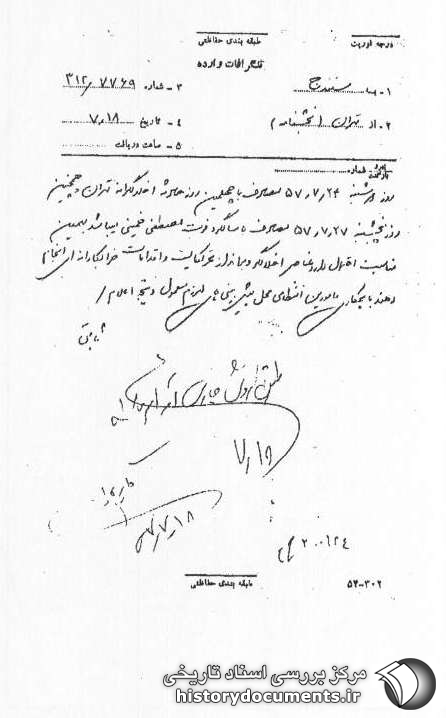 درجه فوریت
طبقه بندی حفاظتی
تلگرافات وارده
۱ - به سنندج
۳ - شماره ۳۱۲/۷۷۶۹
۲ - از تهران (بخشنامه)
۴ - تاریخ ۷/۱۸
۵ - ساعت دریافت
شماره
روز دوشنبه ۵۷/۷/۲۴ مصادف با چهلمین روز حادثه اخلالگرانه تهران و همچنین
روز پنجشنبه ۵۷/۷/۲۷ مصادف با سالگرد فوت مصطفی خمینی میباشد بهمین
مناسبت احتمال دارد عناصر اخلالگر و برانداز تحریکات و اقدامات خرابکارانه ای انجام
دهند با همکاری مامورین انتظامی محل پیش بینی های لازم معمول و نتیجه اعلام /
ثابتی
۷/۱۸
۷/۷/۱۸
۲۰۰۱۲۴
طبقه بندی حفاظتی
۵۲-۳۰۲
مرکز بررسی اسناد تاریخی
historydocuments.ir